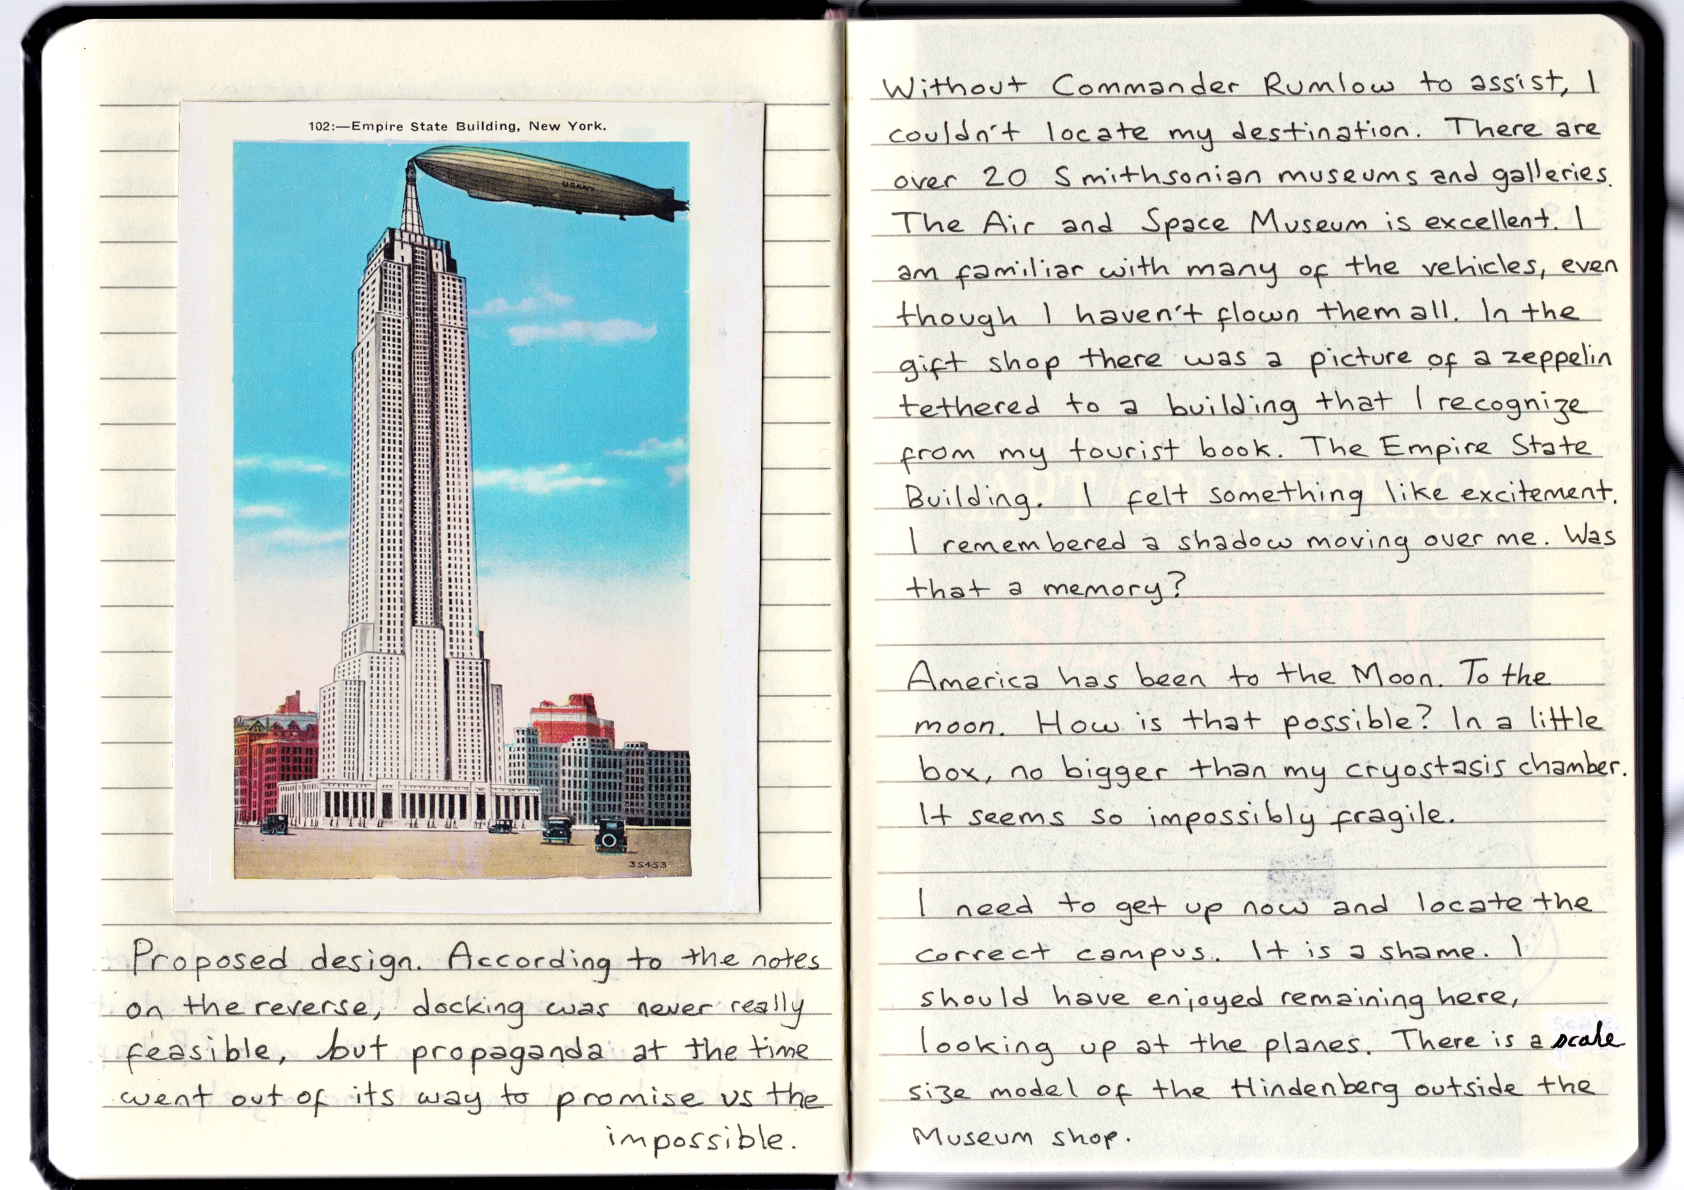 102:—Empire State Building, New York.
U.S. NAVY
35453
Proposed design. According to the notes
on the reverse, docking was never really
feasible, but propaganda at the time
went out of its way to promise us the
impossible.
Without Commander Rumlow to assist, I
couldn't locate my destination. There are
over 20 Smithsonian museums and galleries.
The Air and Space Museum is excellent. I
am familiar with many of the vehicles, even
though I haven't flown them all. In the
gift shop there was a picture of a zeppelin
tethered to a building that I recognize
from my tourist book. The Empire State
Building. I felt something like excitement.
I remembered a shadow moving over me. Was
that a memory?
America has been to the Moon. To the
moon. How is that possible? In a little
box, no bigger than my cryostasis chamber.
It seems so impossibly fragile.
I need to get up now and locate the
correct campus. It is a shame. I
should have enjoyed remaining here,
looking up at the planes. There is a scale
size model of the Hindenberg outside the
Museum shop.